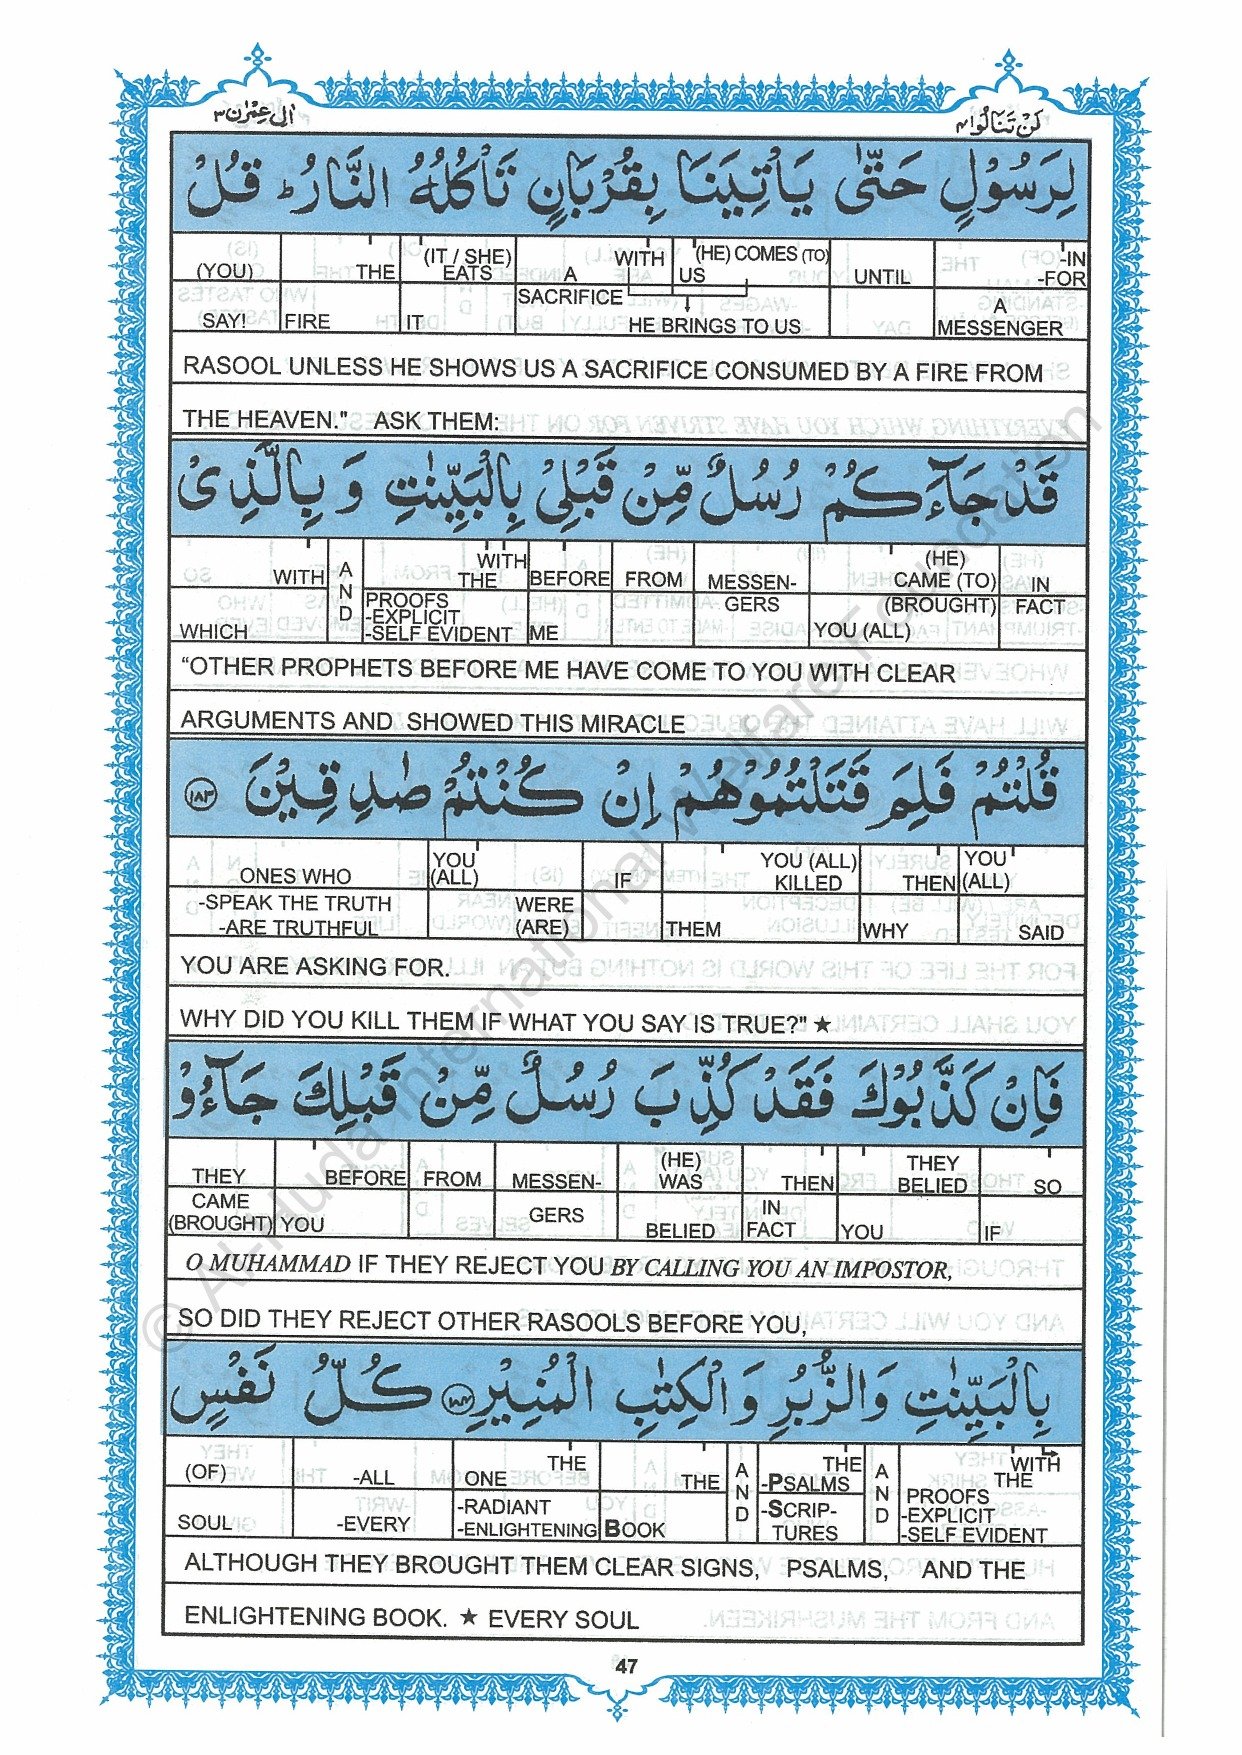 اٰل عِمْرٰن ٣
لَنْ تَنَالُوا ٤
لِرَسُوْلٍ حَتّٰى يَاْتِيَنَا بِقُرْبَانٍ تَاْكُلُهُ النَّارُ ؕ قُلْ
(YOU) SAY! | THE FIRE | (IT / SHE) EATS IT | A SACRIFICE | WITH | (HE) COMES (TO) US | HE BRINGS TO US | UNTIL | -IN -FOR A MESSENGER
RASOOL UNLESS HE SHOWS US A SACRIFICE CONSUMED BY A FIRE FROM
THE HEAVEN." ASK THEM:
قَدْ جَآءَكُمْ رُسُلٌ مِّنْ قَبْلِيْ بِالْبَيِّنٰتِ وَ بِالَّذِيْ
WITH WHICH | AND | WITH THE PROOFS -EXPLICIT -SELF EVIDENT | BEFORE ME | FROM | MESSEN- GERS | (HE) CAME (TO) (BROUGHT) YOU (ALL) | IN FACT
“OTHER PROPHETS BEFORE ME HAVE COME TO YOU WITH CLEAR
ARGUMENTS AND SHOWED THIS MIRACLE
قُلْتُمْ فَلِمَ قَتَلْتُمُوْهُمْ اِنْ كُنْتُمْ صٰدِقِيْنَ ١٨٣
ONES WHO -SPEAK THE TRUTH -ARE TRUTHFUL | YOU (ALL) WERE (ARE) | IF | YOU (ALL) KILLED THEM | THEN WHY | YOU (ALL) SAID
YOU ARE ASKING FOR.
WHY DID YOU KILL THEM IF WHAT YOU SAY IS TRUE?" ★
فَاِنْ كَذَّبُوْكَ فَقَدْ كُذِّبَ رُسُلٌ مِّنْ قَبْلِكَ جَآءُوْ
THEY CAME (BROUGHT) | BEFORE YOU | FROM | MESSEN- GERS | (HE) WAS BELIED | THEN IN FACT | THEY BELIED YOU | SO IF
O MUHAMMAD IF THEY REJECT YOU BY CALLING YOU AN IMPOSTOR,
SO DID THEY REJECT OTHER RASOOLS BEFORE YOU,
بِالْبَيِّنٰتِ وَالزُّبُرِ وَالْكِتٰبِ الْمُنِيْرِ ١٨٤ كُلُّ نَفْسٍ
(OF) SOUL | -ALL -EVERY | THE ONE -RADIANT -ENLIGHTENING | THE BOOK | AND | THE -PSALMS -SCRIP- TURES | AND | WITH THE PROOFS -EXPLICIT -SELF EVIDENT
ALTHOUGH THEY BROUGHT THEM CLEAR SIGNS, PSALMS, AND THE
ENLIGHTENING BOOK. ★ EVERY SOUL
47
© Al-Huda International Welfare Foundation